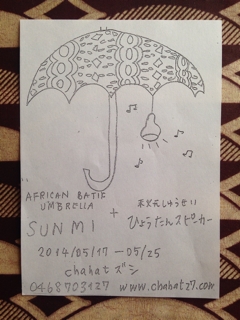 AFRICAN BATIK
UMBRELLA
SUNMI
+
ひょうたんスピーカー
2014/05/17 ― 05/25
chahat ズシ
0468703127 www.chahat27.com